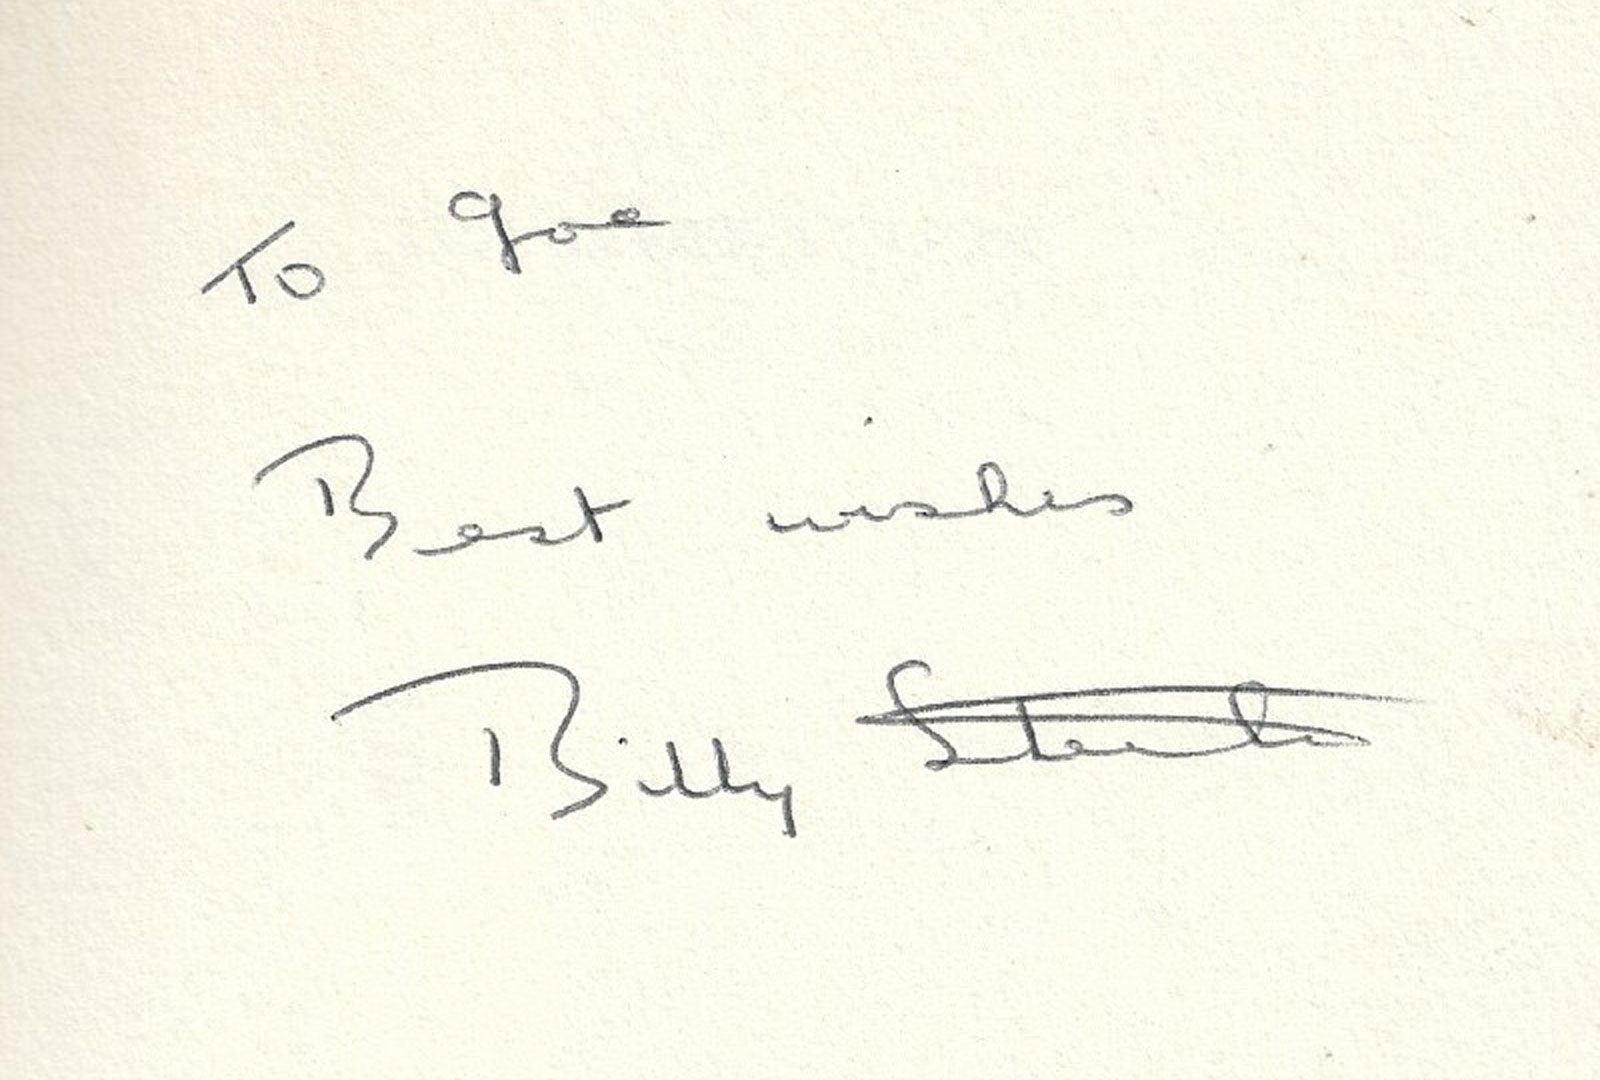 To Joe
Best wishes
Billy Steele